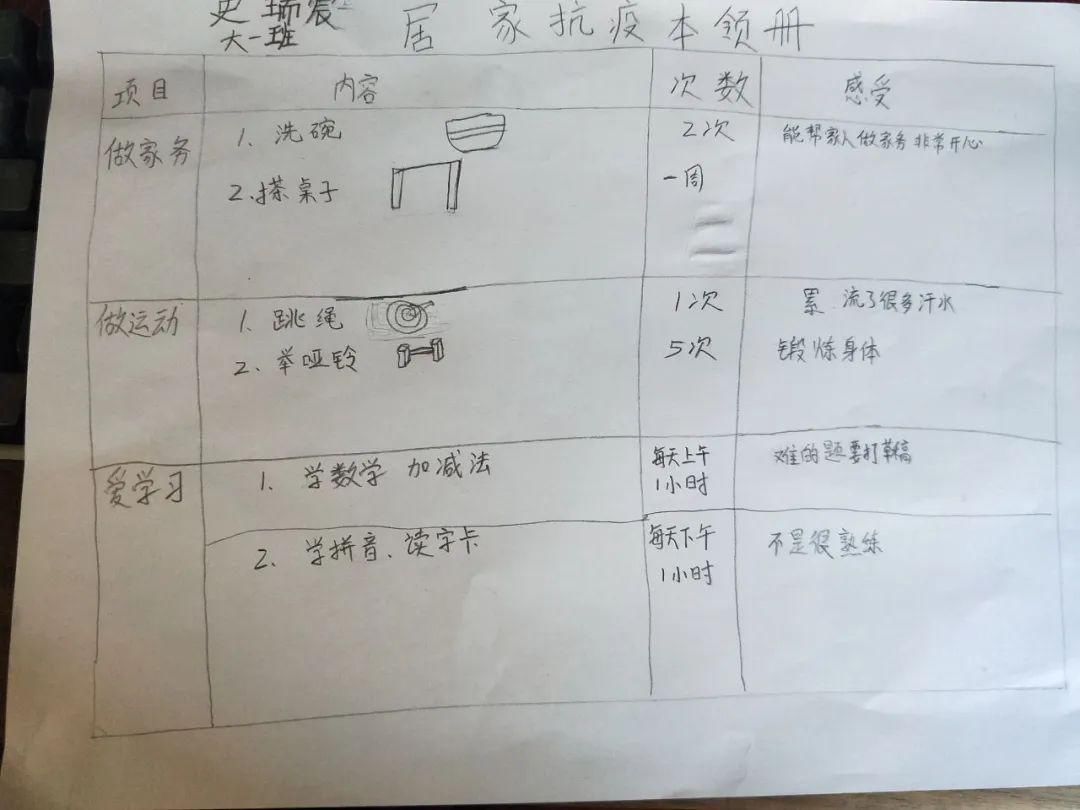 史瑞宸
大一班
居家抗疫本领册
项目 内容 次数 感受
做家务 1. 洗碗 2次 能帮家人做家务非常开心
2.搽桌子 一周
做运动 1. 跳绳 1次 累.流了很多汗水
2. 举哑铃 5次 锻炼身体
爱学习 1. 学数学 加减法 每天上午 难的题要打草稿
1小时
2. 学拼音、读字卡 每天下午 不是很熟练
1小时